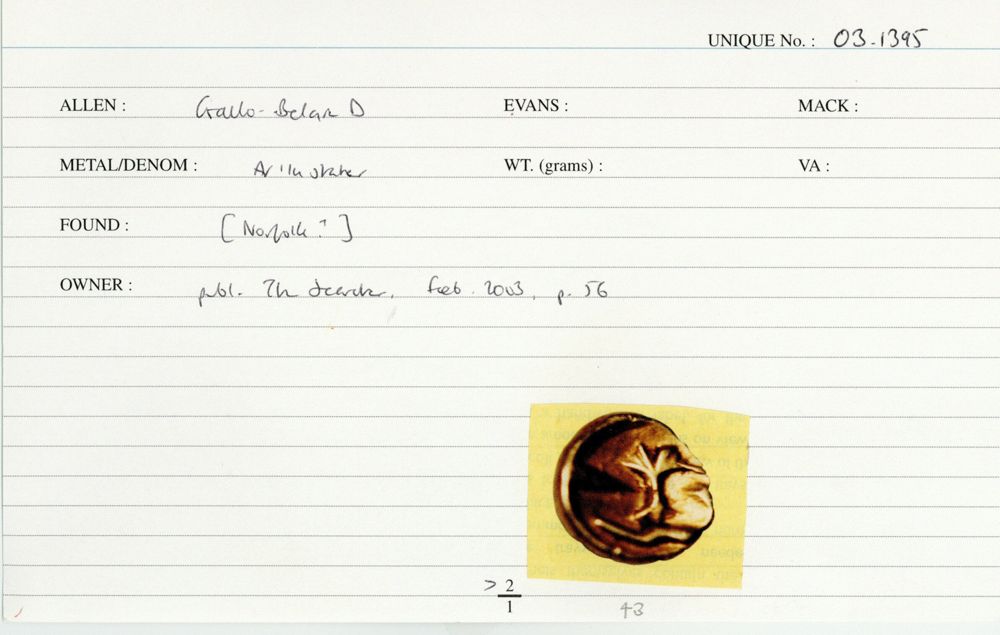 UNIQUE No. : 03-1395
ALLEN : Gallo-Belgic D EVANS : MACK :
METAL/DENOM : AV 1/4 stater WT. (grams) : VA :
FOUND : [Norfolk?]
OWNER : publ. The Searcher, Feb. 2003, p. 56
> 2
1
43